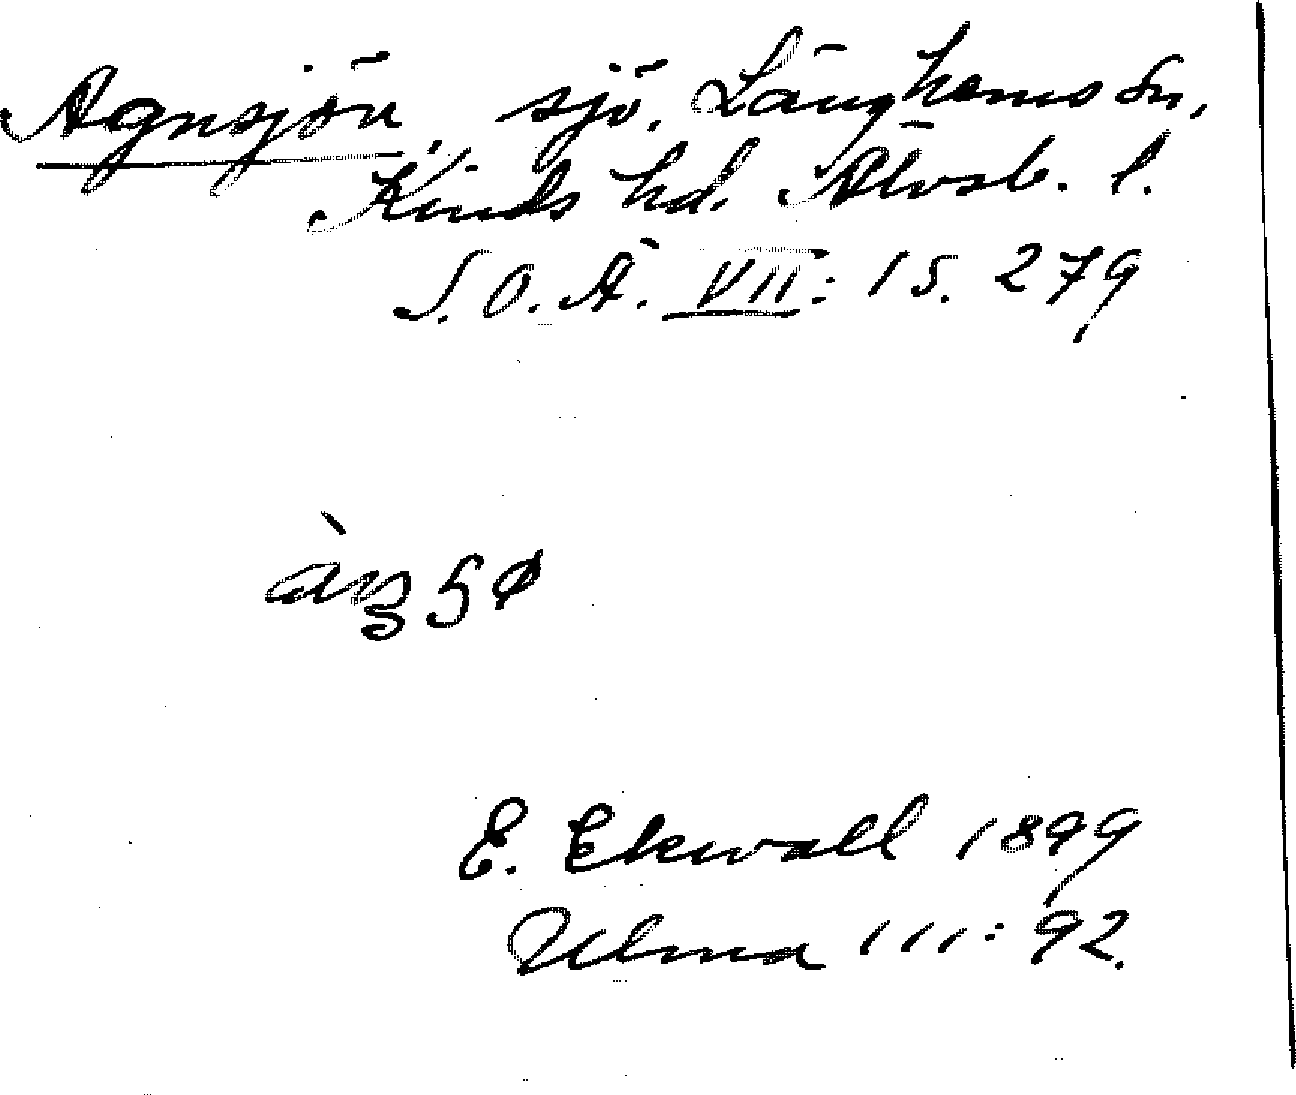 Agnsjön, sjö, Länghems sn,
Kinds hd. Älvsb. l.
S.O.Ä. VII: 1 s. 279
E. Ekwall 1899
Ulma 111: 92.